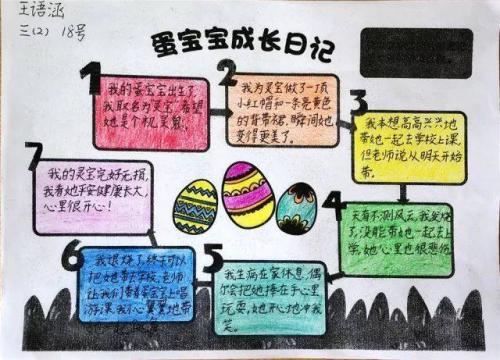 王语涵
三(2) 18号
蛋宝宝成长日记
1
我的蛋宝宝出生了,
我取名为灵宝,希望
她是个机灵鬼。
2
我为灵宝做了一顶
小红帽和一条亮黄色
的背带裙,瞬间她
变得更美了。
3
我本想高高兴兴地
带她一起去学校上课,
但老师说从明天开始
带。
4
天有不测风云,我发烧
了,没能带她一起去上
学,她心里也很悲伤
5
我生病在家休息,偶
尔会把她捧在手心里
玩耍,她开心地冲我
笑。
6
我退烧了,终于可以
把她带去学校,老师
让我们带着蛋宝宝上唱
游课,我小心翼翼地带
7
我的灵宝完好无损,
我看她平安健康长大,
心里很开心!